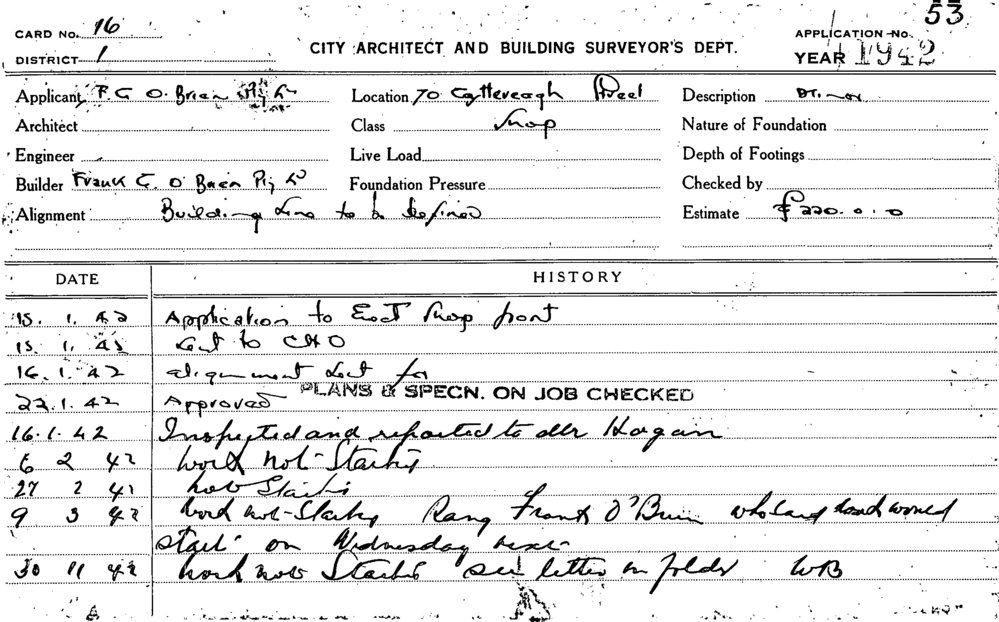 53
CARD No. 16
APPLICATION No.
DISTRICT 1
CITY ARCHITECT AND BUILDING SURVEYOR'S DEPT.
YEAR 1942
Applicant F G O'Brien Pty Ld Location 70 Street Description
Architect Class Shop Nature of Foundation
Engineer Live Load Depth of Footings
Builder Frank G. O'Brien Pty Ld Foundation Pressure Checked by
Alignment Building Line to be defined Estimate £220.0.0
DATE HISTORY
15. 1. 42 Application to Erect Shop front
15. 1. 42 Sent to CHO
16. 1. 42 alignment sent for
PLANS & SPECN. ON JOB CHECKED
22. 1. 42 Approved
16. 1. 42 Inspected and reported to Mr Hogan
6 2 42 Work not Started
27 2 42 not Started
9 3 42 Work not Started Rang Frank O'Brien who said would
start on Wednesday next
30 11 42 Work not Started see letter in folder WB